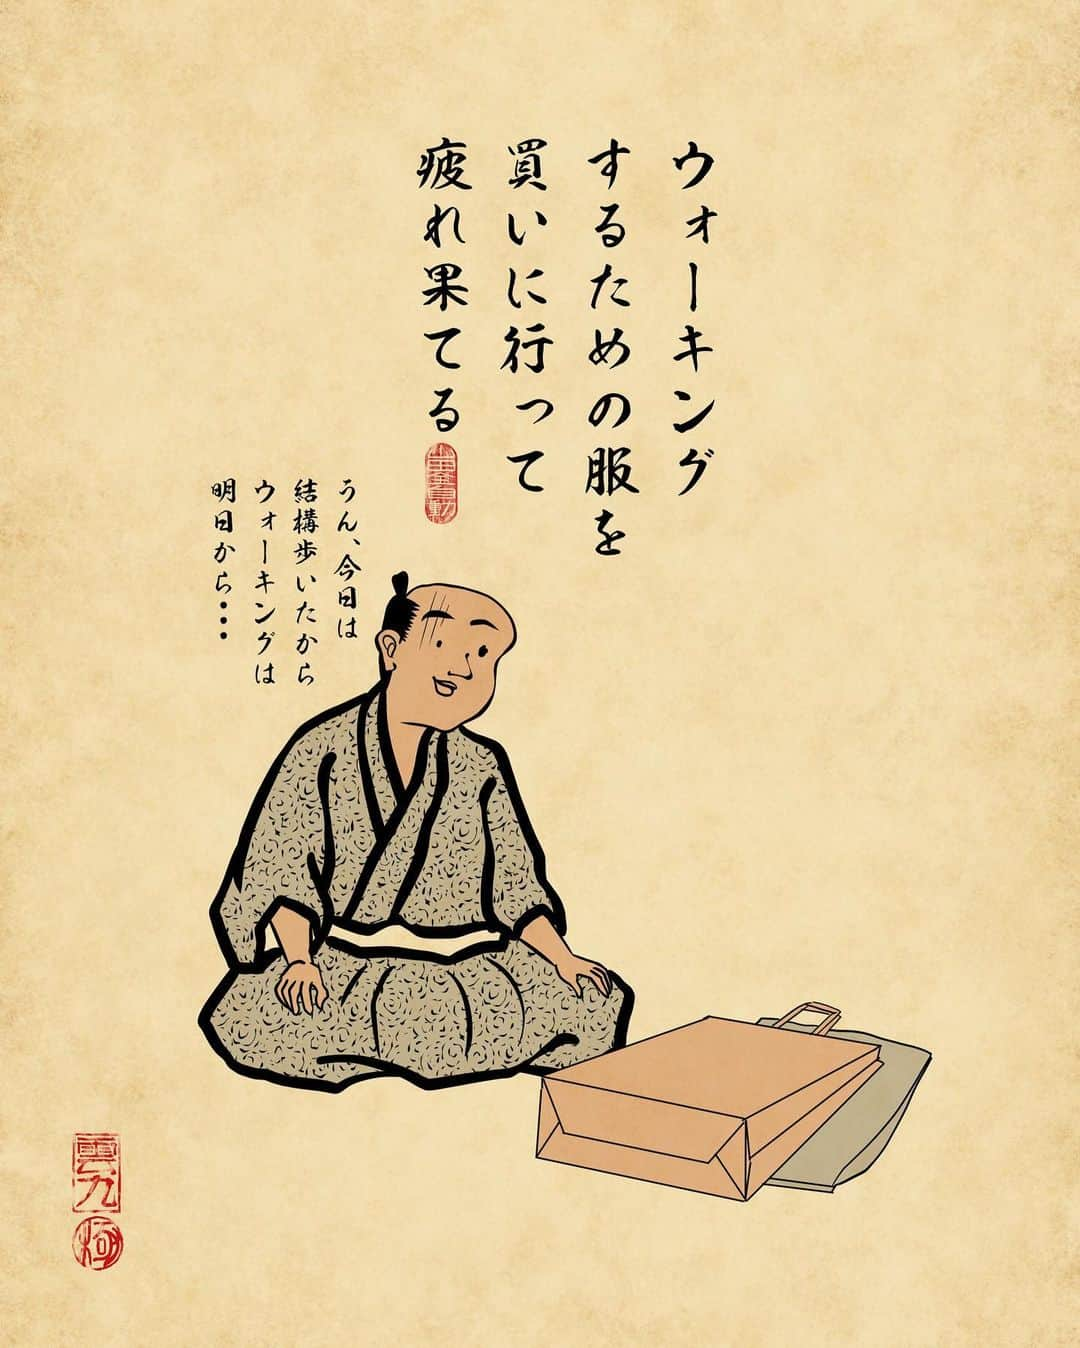 ウォーキング
するための服を
買いに行って
疲れ果てる
うん、今日は
結構歩いたから
ウォーキングは
明日から・・・